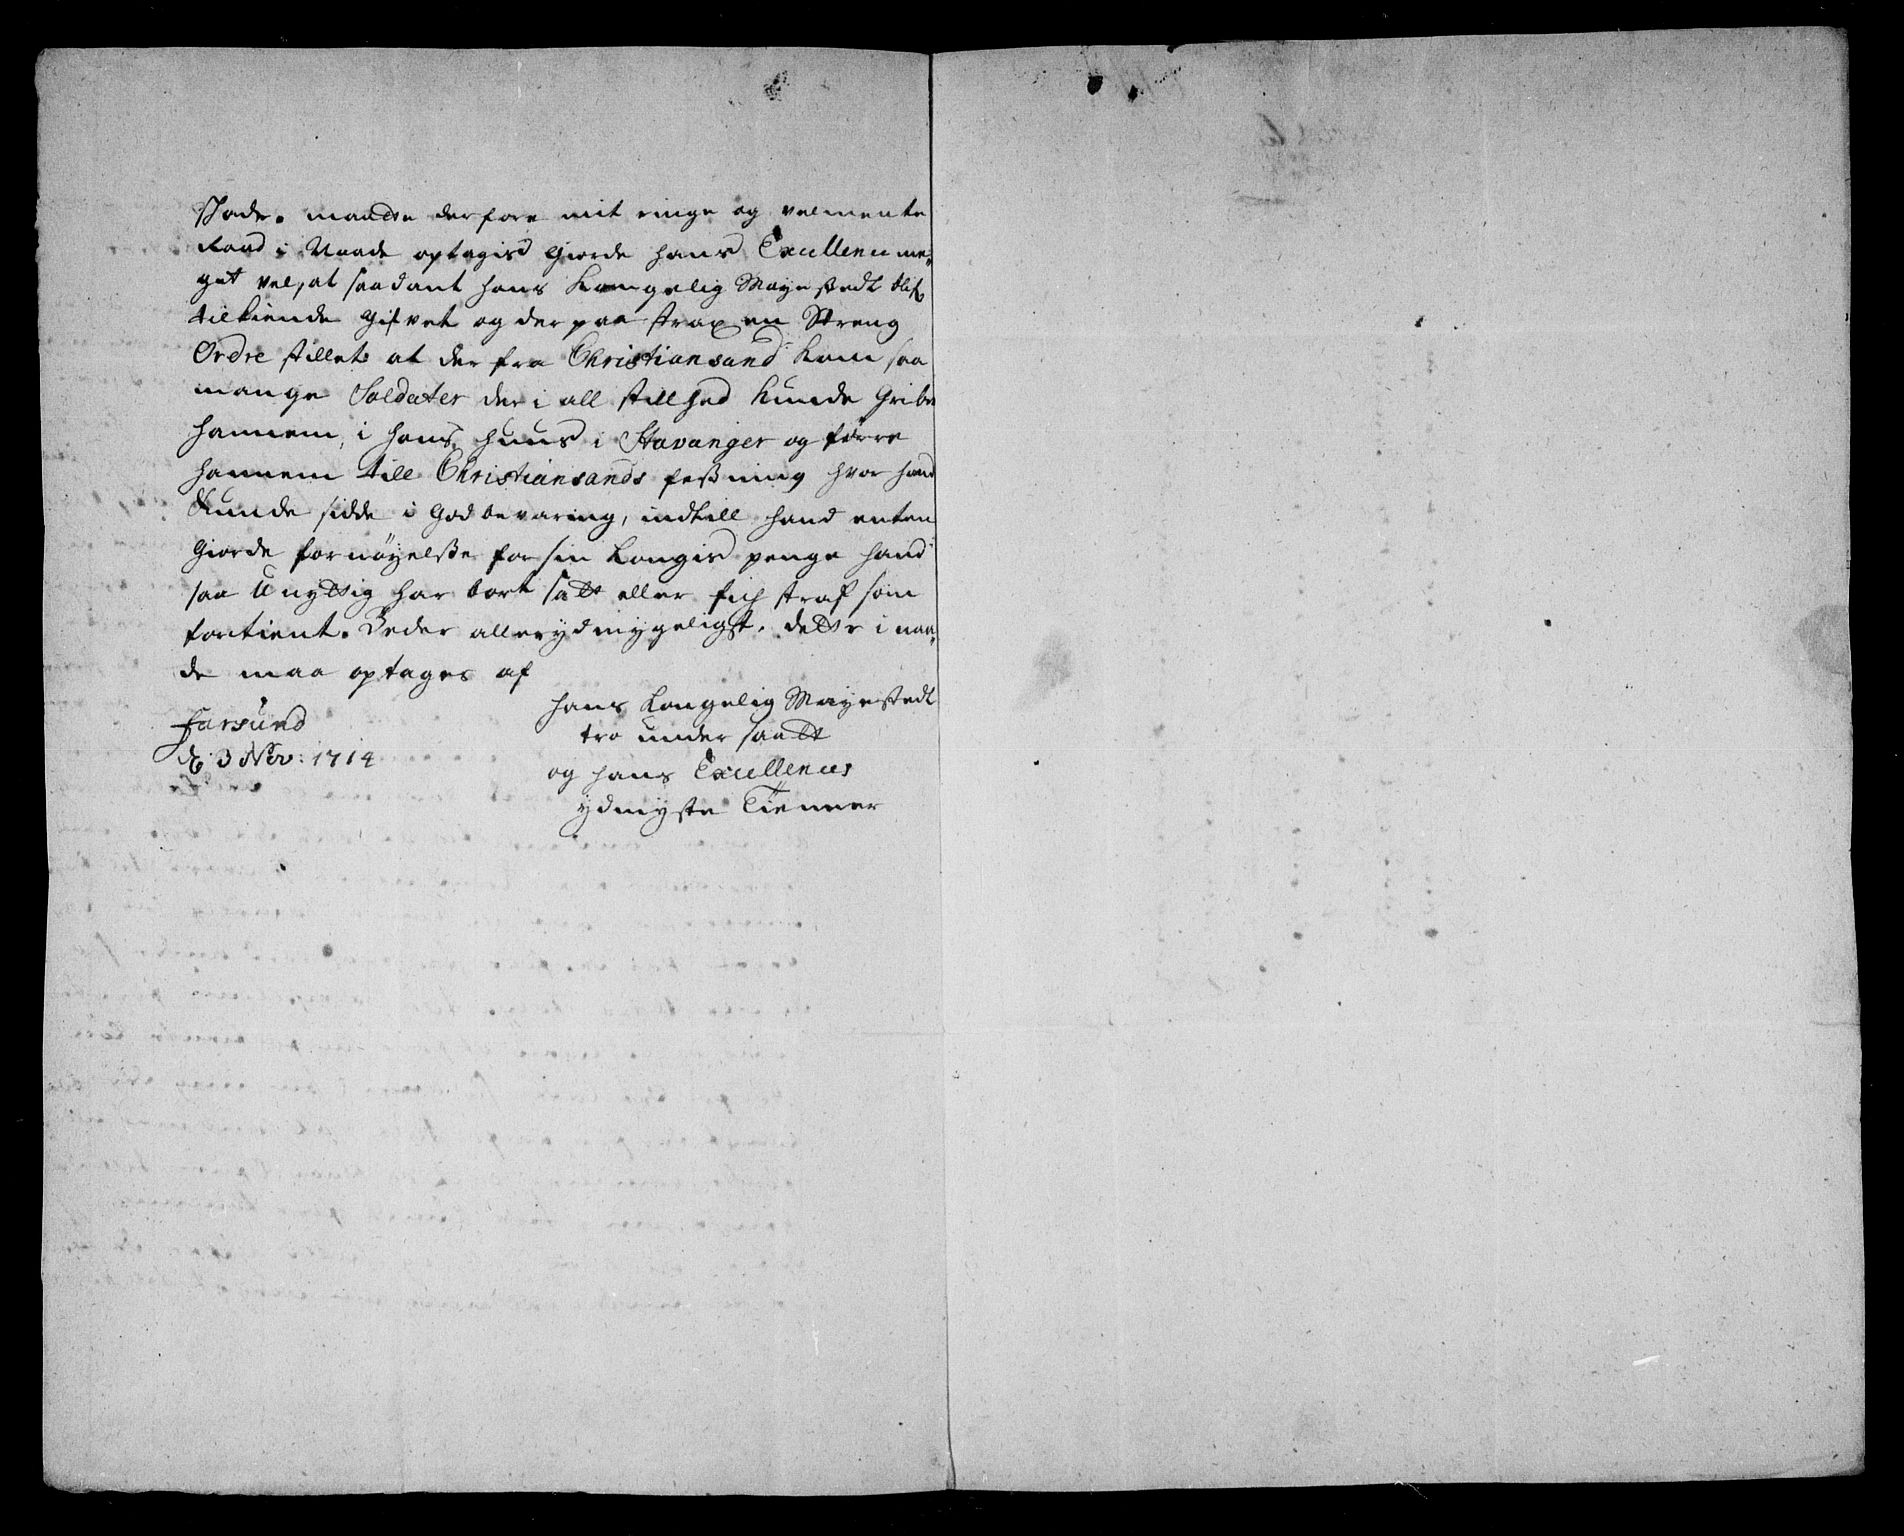 skade. maatte derfore mit ringe og velmente
Raad i Naade optagis giorde hans Excellence me-
get vel, at saadant hans Kongelig Mayestedt blef
tilkiende gifvet og der paa strax en Streng
Ordre stillet at der fra Christiansand kom saa
mange Soldater der i all stillhed kunde gribe
hannem, i hans huus i Stavanger og førre
hannem till Christiansands festning hvor hand
kunde sidde i god bevaring, indtill hand enten
giorde fornøyelße for sin Kongis penge hand
saa unyttig har bort satt eller fich straf som
fortient. Beder allerydmygeligst, dette i naa-
de maa optages af
hans Kongelig Mayestedt
tro under saatt
og hans Excellences
ydmyste Tienner
Farsund
d. 3 Nov: 1714